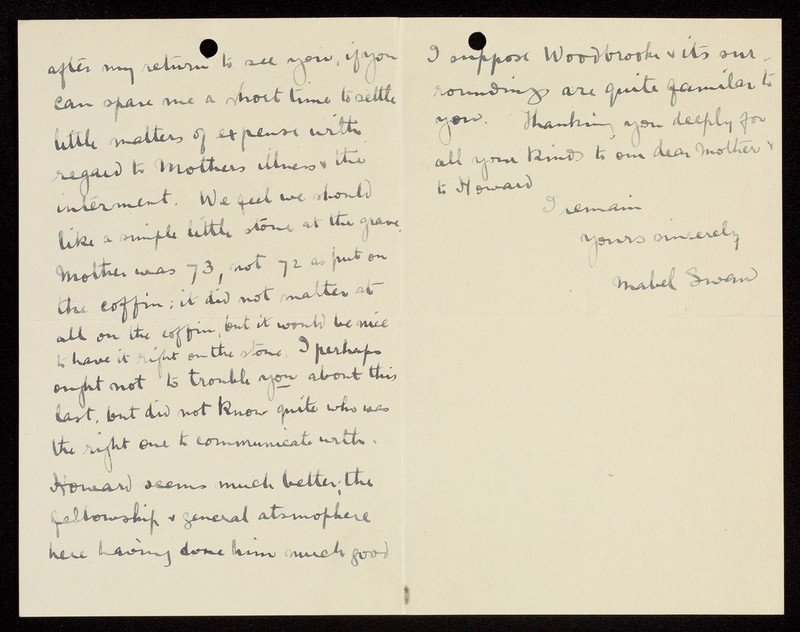 after my return to see you, if you
can spare me a short time to settle
little matters of expense with
regard to Mothers illness & the
interment. We feel we should
like a simple little stone at the grave.
Mother was 73, not 72 as put on
the coffin; it did not matter at
all on the coffin, but it would be nice
to have it right on the stone. I perhaps
ought not to trouble you about this
last, but did not know quite who was
the right one to communicate with.
Howard seems much better, the
fellowship & general atsmophere
here having done him much good
I suppose Woodbrooke & its sur-
roundings are quite familar to
you. Thanking you deeply for
all your kinds to our dear Mother &
to Howard
I remain
yours sincerely
Mabel Swan